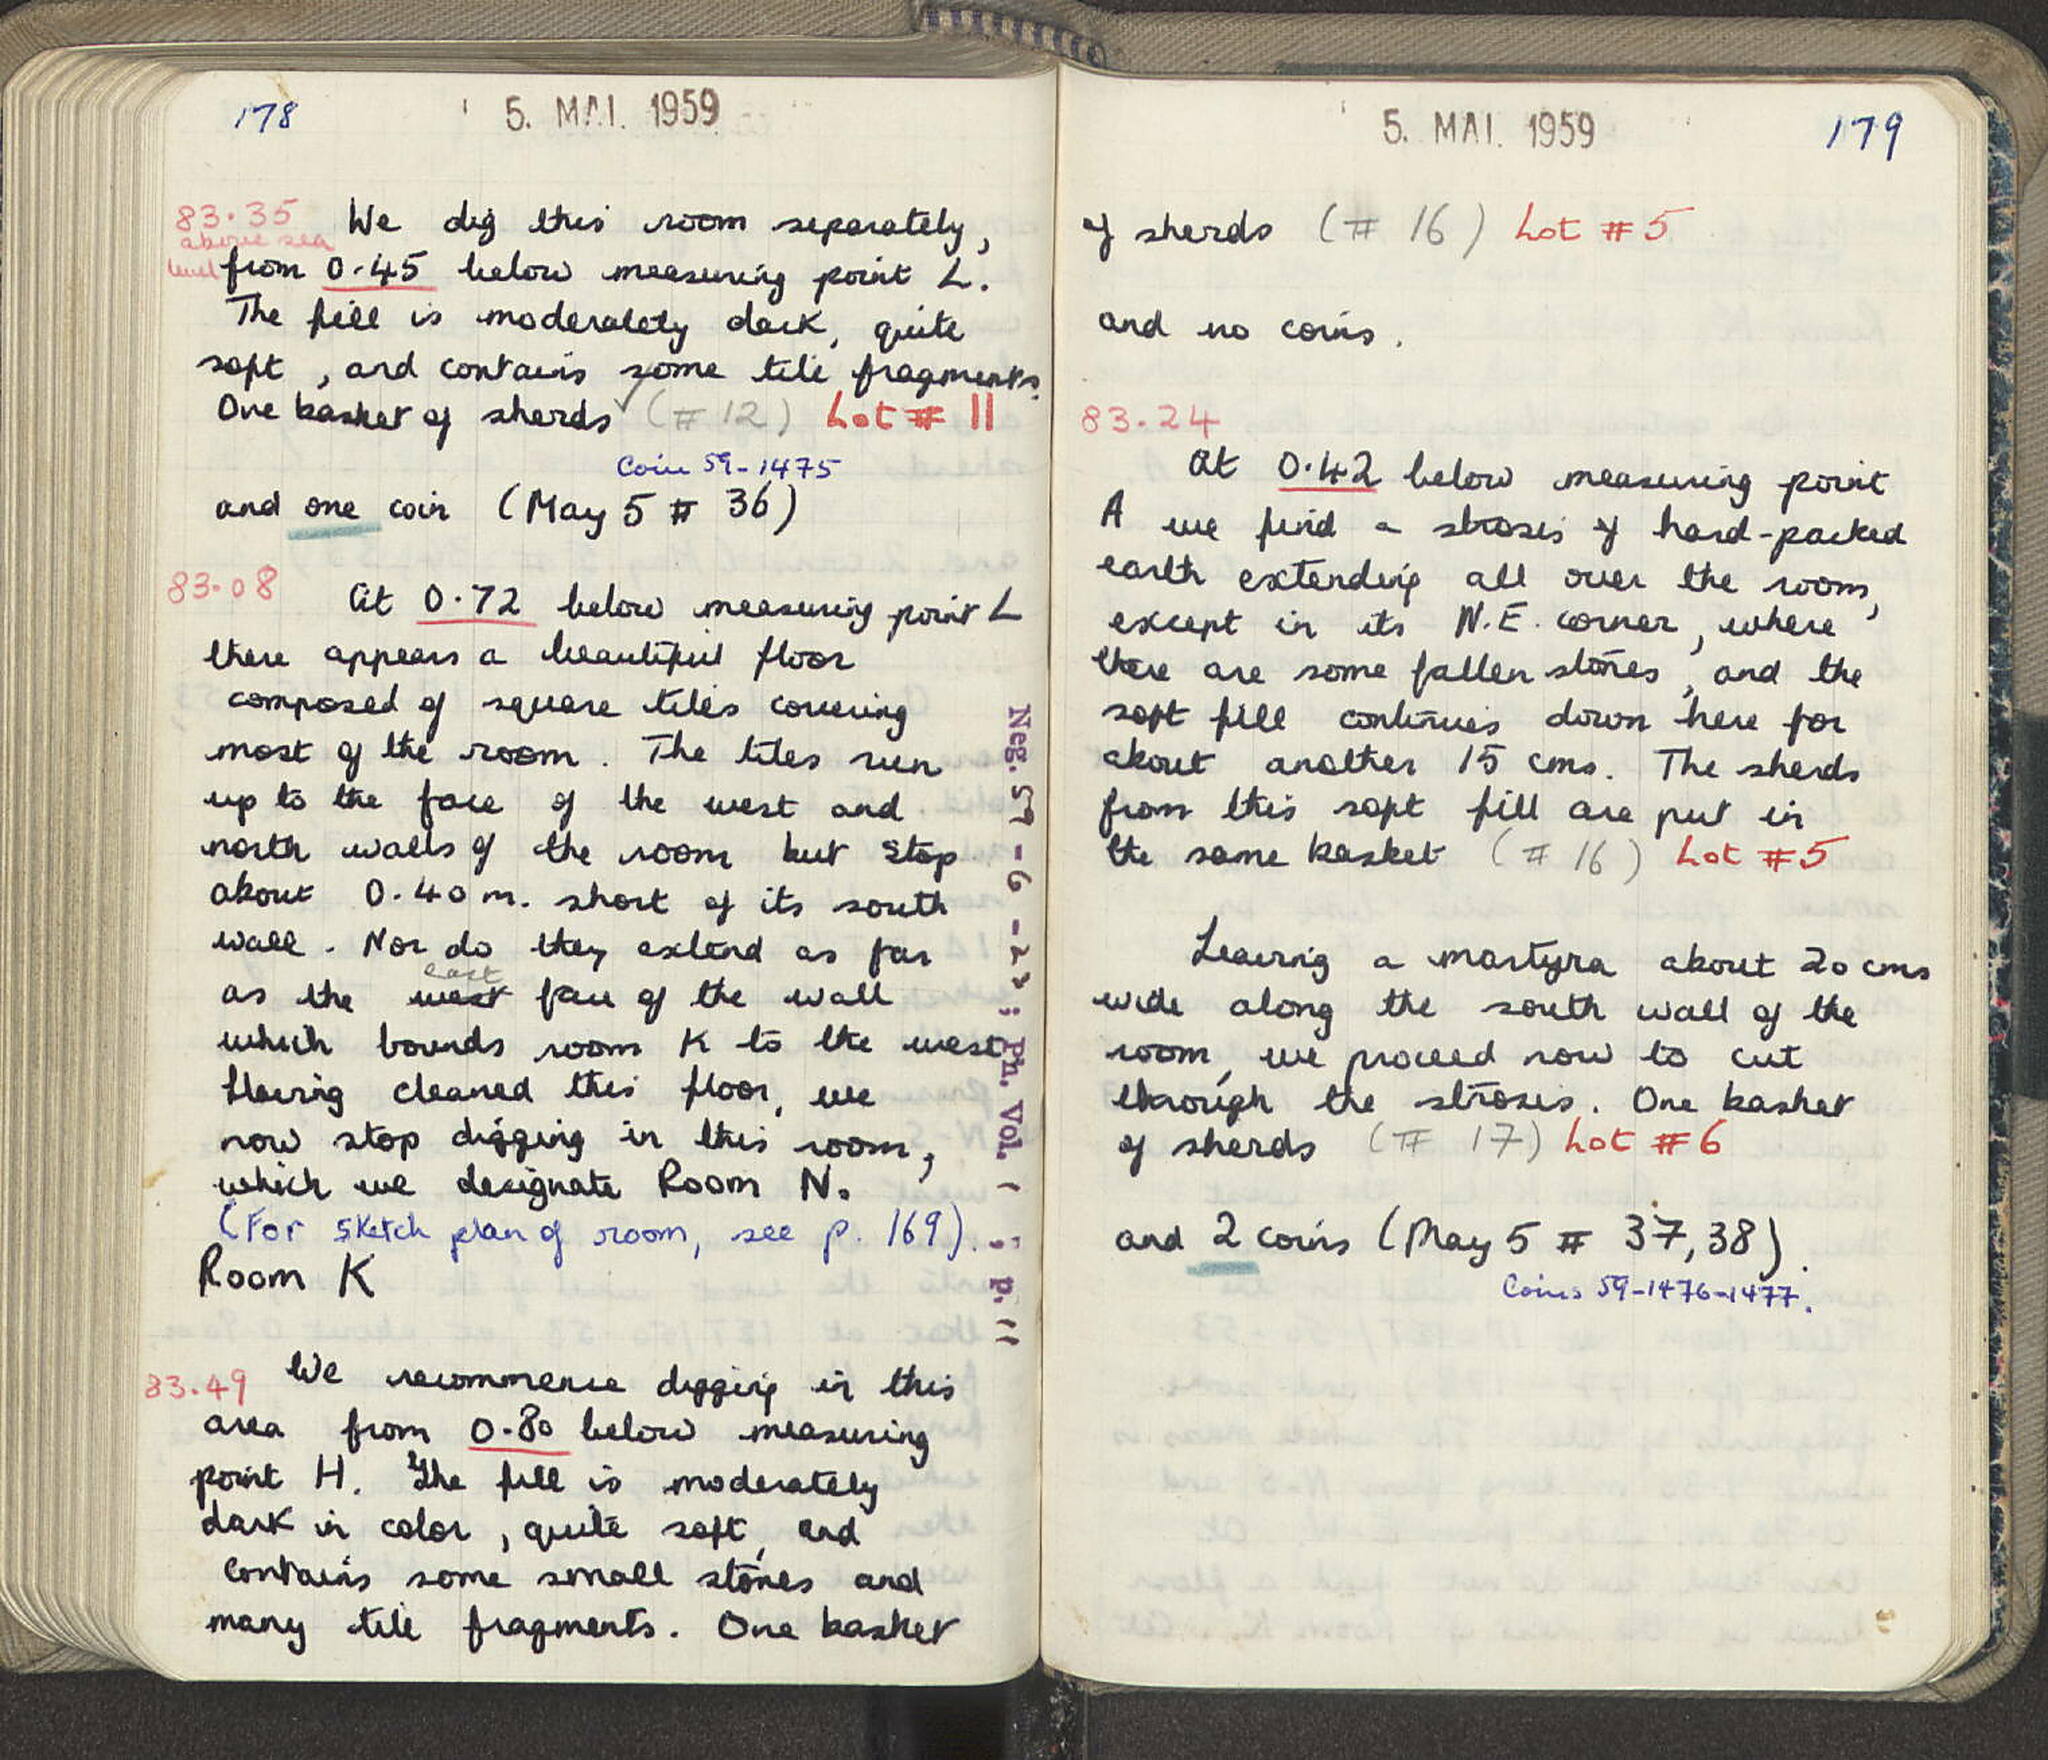 178
5. MAI. 1959
83.35
above sea
level
We dig this room separately,
from 0.45 below measuring point L.
The fill is moderately dark, quite
soft, and contains some tile fragments.
One basket of sherds ✓ (# 12) Lot # 11
Coin 59-1475
and one coin (May 5 # 36)
83.08
At 0.72 below measuring point L
there appears a beautiful floor
composed of square tiles covering
most of the room. The tiles run
up to the face of the west and
north walls of the room but stop
about 0.40 m. short of its south
wall. Nor do they extend as far
east
as the west face of the wall
which bounds room K to the west.
Having cleaned this floor, we
now stop digging in this room,
which we designate Room N.
(For sketch plan of room, see p. 169).
Room K
83.49
We recommence digging in this
area from 0.80 below measuring
point H. The fill is moderately
dark in color, quite soft, and
contains some small stones and
many tile fragments. One basket
Neg. 59-6-27; Ph. Vol. 1; p. 11
5. MAI. 1959
179
of sherds (# 16) Lot # 5
and no coins.
83.24
At 0.42 below measuring point
A we find a strosis of hard-packed
earth extending all over the room,
except in its N.E. corner, where
there are some fallen stones, and the
soft fill continues down here for
about another 15 cms. The sherds
from this soft fill are put in
the same basket (# 16) Lot # 5
Leaving a martyra about 20 cms
wide along the south wall of the
room, we proceed now to cut
through the strosis. One basket
of sherds (# 17) Lot # 6
and 2 coins (May 5 # 37, 38).
Coins 59-1476-1477.